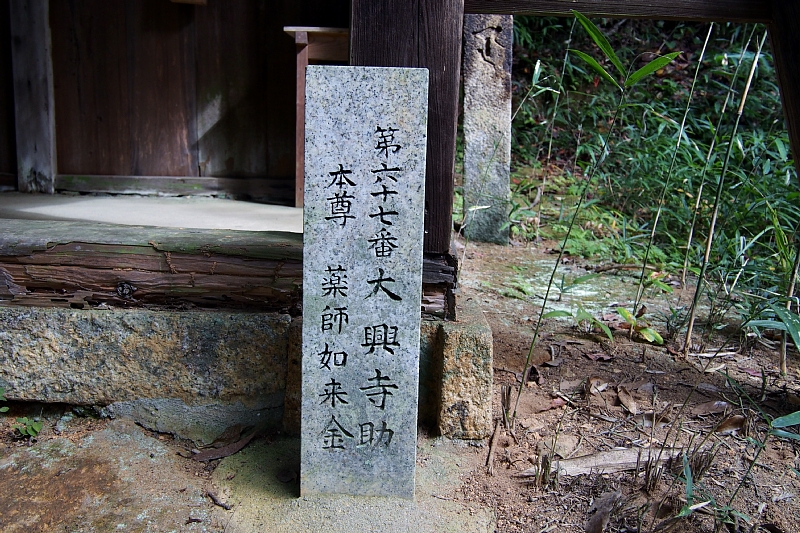 第六十七番 大興寺 助
本尊 薬師如来 金